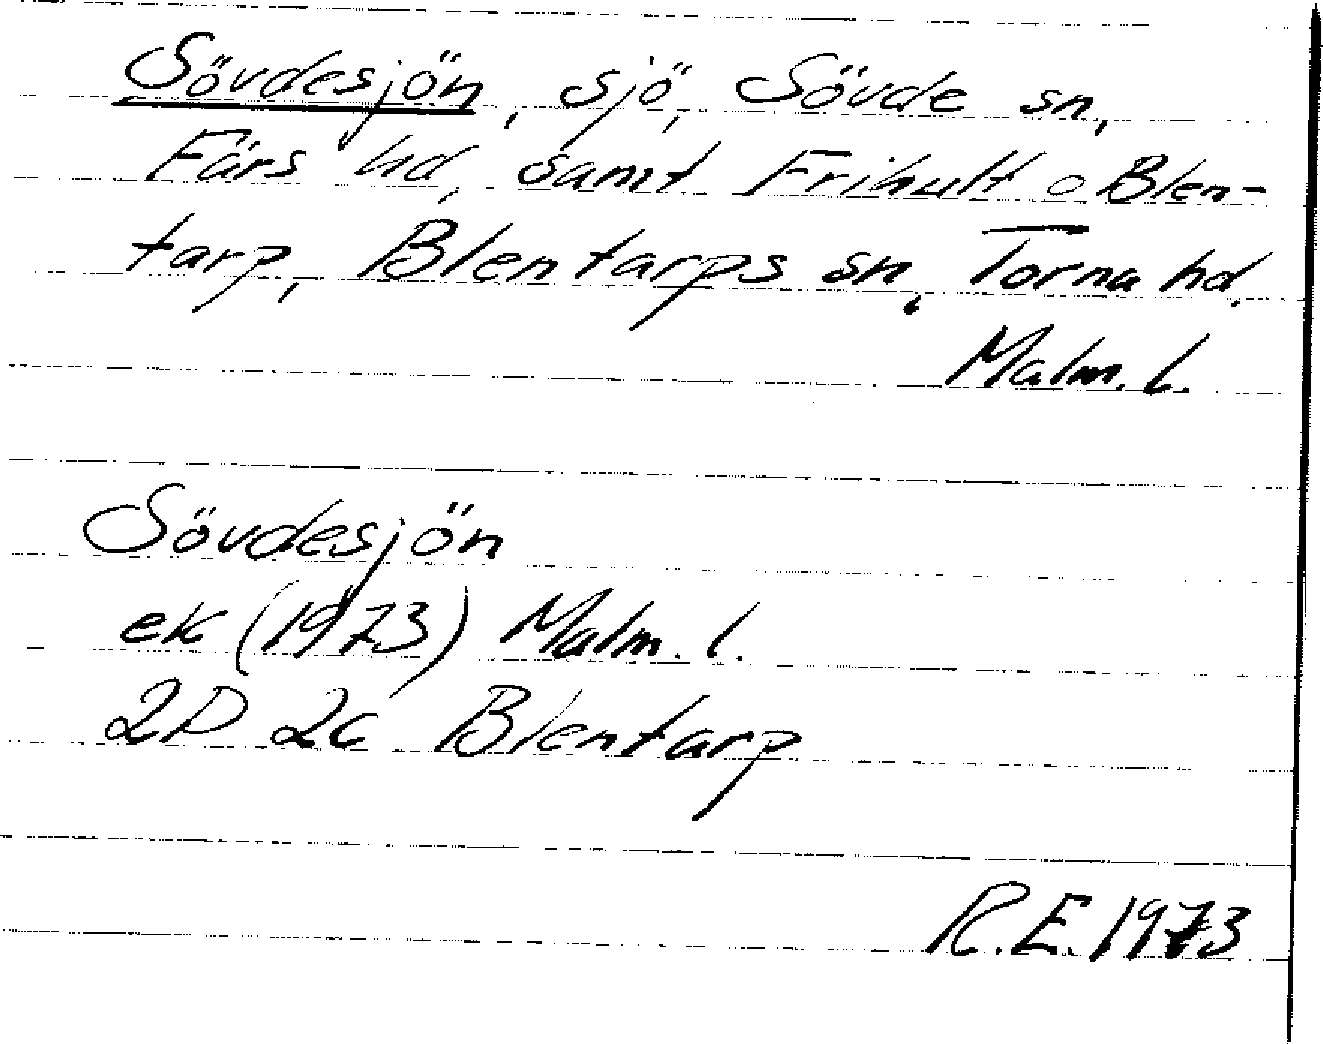 Sövdesjön, sjö, Sövde sn,
Färs hd, samt Frihult o Blen-
tarp, Blentarps sn, Torna hd.
Malm. l.
Sövdesjön
ek (1973) Malm. l.
2D 2c Blentarp
R.E. 1973